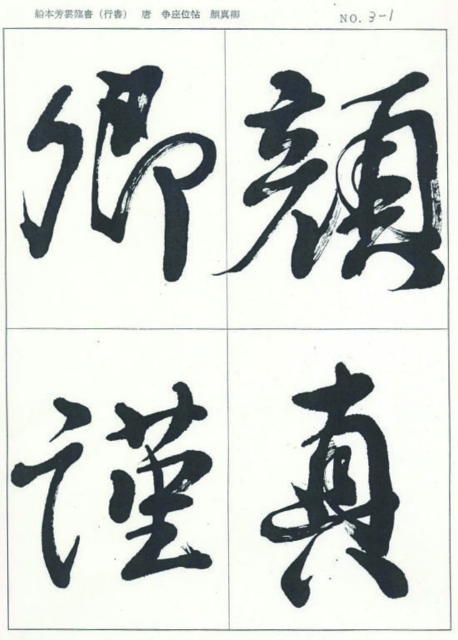 船本芳雲臨書（行書） 唐 争座位帖 顔真卿
NO. 3-1
顔真
卿謹